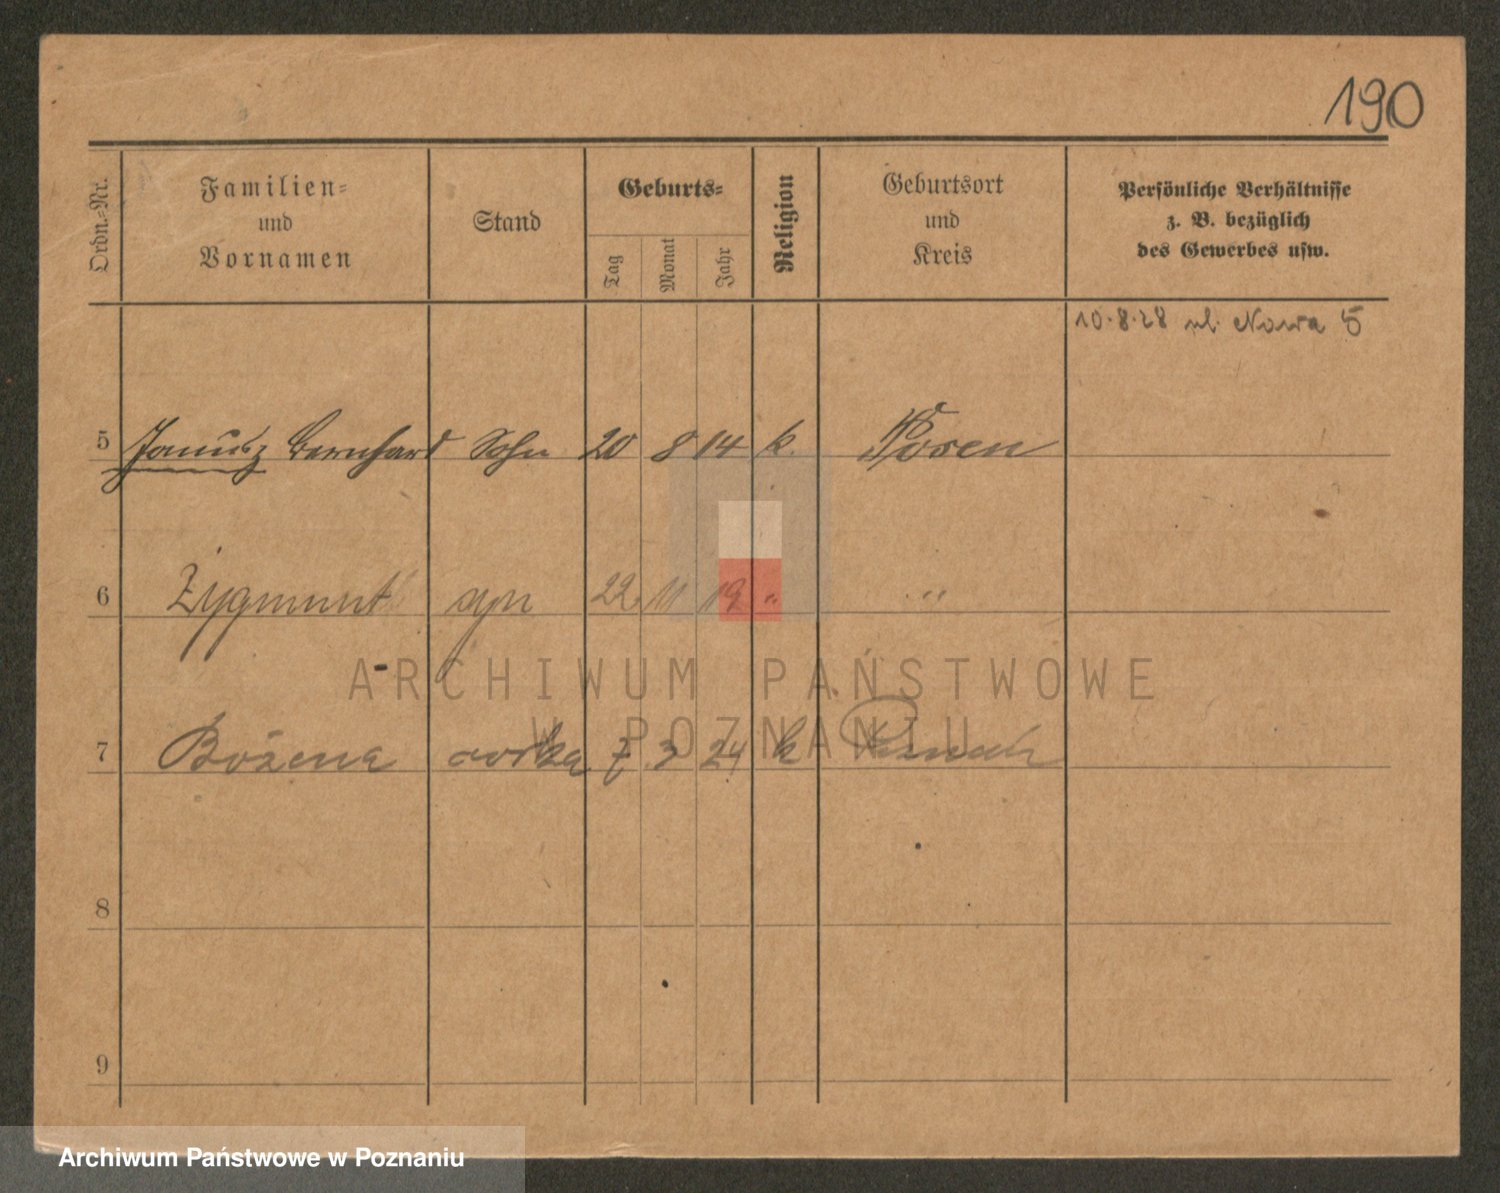 190
Ordn.=Nr.
Familien=
und
Vornamen
Stand
Geburts=
Tag
Monat
Jahr
Religion
Geburtsort
und
Kreis
Persönliche Verhältnisse
z. B. bezüglich
des Gewerbes usw.
10.8.28 ul. Nowa 5
5 Janusz Bernhard Sohn 20 8 14 k. Posen
6 Zygmunt syn 22 11 19 " "
7 Bożena córka 7 3 24 k
8
9
ARCHIWUM PAŃSTWOWE
W POZNANIU
Archiwum Państwowe w Poznaniu